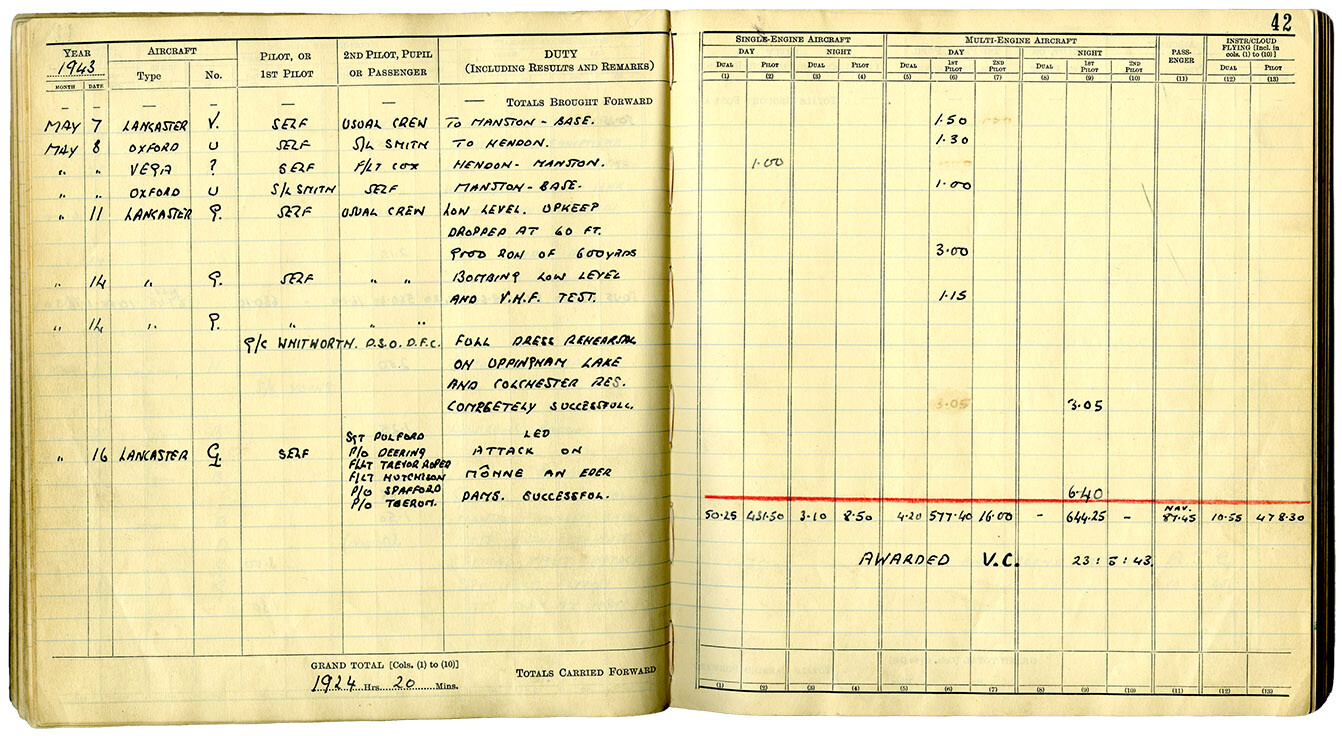 42
YEAR AIRCRAFT PILOT, OR 1ST PILOT 2ND PILOT, PUPIL OR PASSENGER DUTY (INCLUDING RESULTS AND REMARKS) SINGLE-ENGINE AIRCRAFT MULTI-ENGINE AIRCRAFT PASS-ENGER INSTR/CLOUD FLYING [Incl. in cols. (1) to (10)]
1943 Type No. DAY NIGHT DAY NIGHT
MONTH DATE DUAL PILOT DUAL PILOT DUAL 1ST PILOT 2ND PILOT DUAL 1ST PILOT 2ND PILOT DUAL PILOT
(1) (2) (3) (4) (5) (6) (7) (8) (9) (10) (11) (12) (13)
— — — — — — — TOTALS BROUGHT FORWARD
MAY 7 LANCASTER V. SELF USUAL CREW TO MANSTON - BASE. 1.50
MAY 8 OXFORD U SELF S/L SMITH TO HENDON. 1.30
" " VEGA ? SELF F/LT COX HENDON - MANSTON. 1.00
" " OXFORD U S/L SMITH SELF MANSTON - BASE. 1.00
" 11 LANCASTER G. SELF USUAL CREW LOW LEVEL. UPKEEP
DROPPED AT 60 FT.
GOOD RUN OF 600YRDS 3.00
" 14 " G. SELF " " BOMBING LOW LEVEL
AND V.H.F. TEST. 1.15
" 14 " G. " " "
G/C WHITWORTH. D.S.O. D.F.C. FULL DRESS REHEARSAL
ON UPPINGHAM LAKE
AND COLCHESTER RES.
COMPLETELY SUCCESSFULL. 3.05 3.05
" 16 LANCASTER G. SELF SGT PULFORD LED
P/O DEERING ATTACK ON
F/LT TREVOR ROPER
F/LT HUTCHISON MÖHNE AN EDER
P/O SPAFFORD DAMS. SUCCESSFUL. 6.40
P/O TAERUM.
50.25 431.50 3.10 8.50 4.20 577.40 16.00 - 644.25 - NAV. 87.45 10.55 478.30
AWARDED V.C. 23:5:43.
GRAND TOTAL [Cols. (1) to (10)]
1924 Hrs. 20 Mins. TOTALS CARRIED FORWARD
(1) (2) (3) (4) (5) (6) (7) (8) (9) (10) (11) (12) (13)